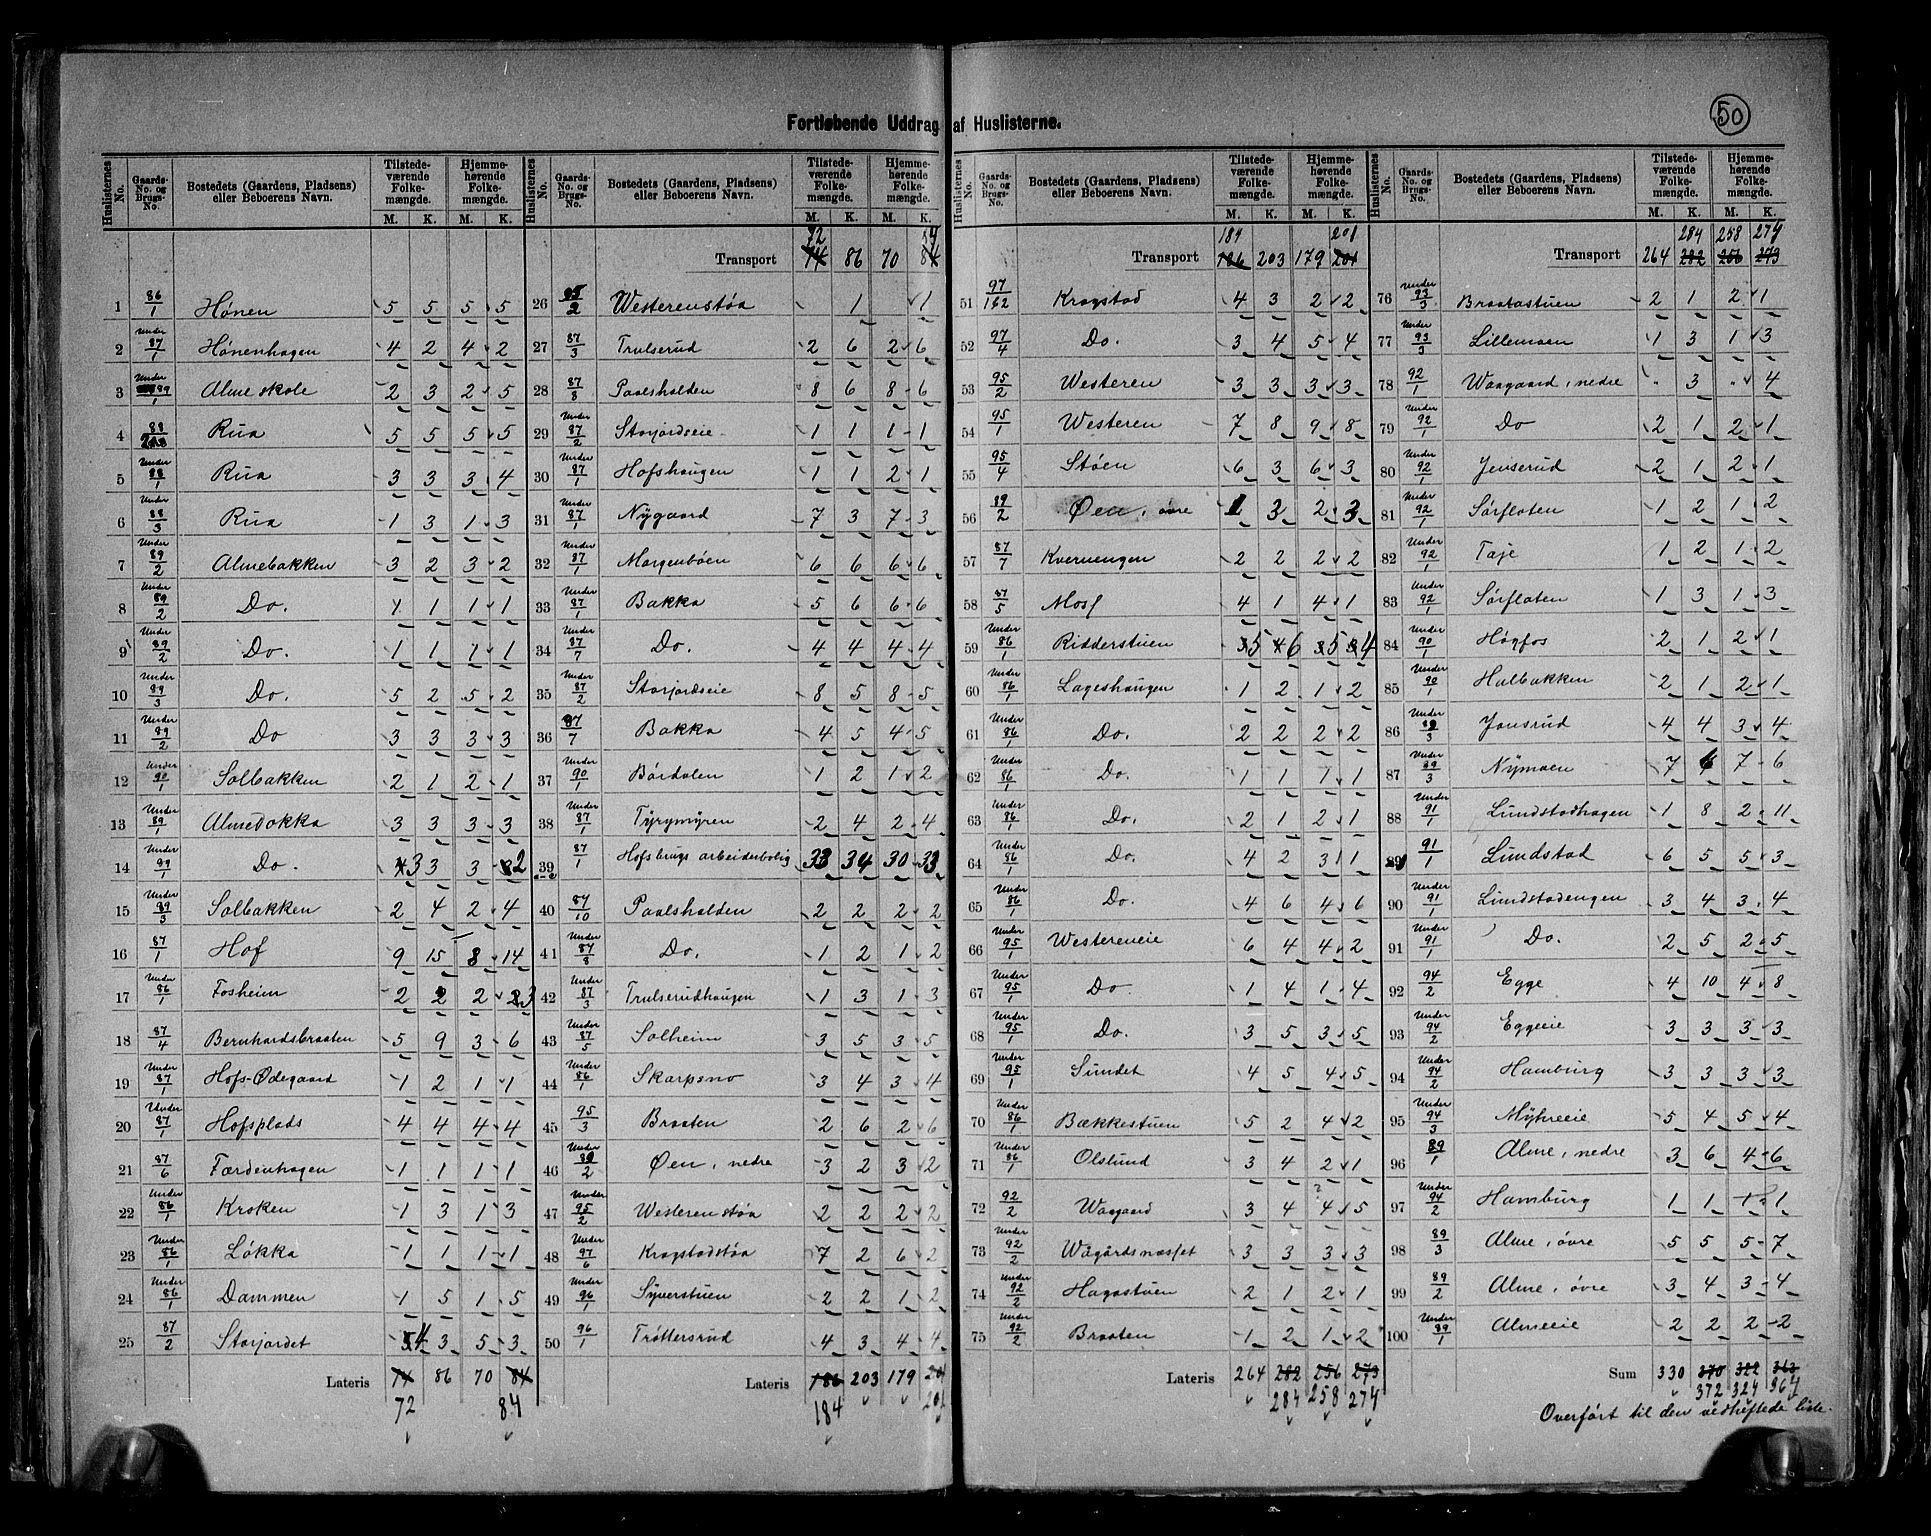 50
Fortløbende Uddrag af Huslisterne.
Huslisternes No. | Gaards-No. og Brugs-No. | Bostedets (Gaardens, Pladsens) eller Beboerens Navn. | Tilstedeværende Folkemængde. M. K. | Hjemmehørende Folkemængde. M. K.
1 | 86/1 | Hønen | 5 | 5 | 5 | 5
2 | Under 87/1 | Hønenhagen | 4 | 2 | 4 | 2
3 | Under 89/1 | Alme skole | 2 | 3 | 2 | 5
4 | 88 | Rua | 5 | 5 | 5 | 5
5 | Under 88/1 | Rua | 3 | 3 | 3 | 4
6 | Under 88/3 | Rua | 1 | 3 | 1 | 3
7 | Under 89/2 | Almebakken | 3 | 2 | 3 | 2
8 | Under 89/2 | Do. | 1 | 1 | 1 | 1
9 | Under 89/2 | Do. | 1 | 1 | 1 | 1
10 | Under 89/3 | Do. | 5 | 2 | 5 | 2
11 | Under 89/2 | Do | 3 | 3 | 3 | 3
12 | Under 90/1 | Solbakken | 2 | 1 | 2 | 1
13 | Under 89/1 | Almedokka | 3 | 3 | 3 | 3
14 | Under 99/1 | Do. | 3 | 3 | 3 | 2
15 | Under 89/3 | Solbakken | 2 | 4 | 2 | 4
16 | 87/1 | Hof | 9 | 15 | 8 | 14
17 | Under 86/1 | Fosheim | 2 | 2 | 2 | 3
18 | 87/4 | Bernhardsbraaten | 5 | 9 | 3 | 6
19 | Under 87/1 | Hofs-Ødegaard | 1 | 2 | 1 | 1
20 | Under 87/1 | Hofsplads | 4 | 4 | 4 | 4
21 | 87/6 | Færdenhagen | 1 | 1 | 1 | 1
22 | Under 86/1 | Kroken | 1 | 3 | 1 | 3
23 | Under 86/1 | Løkka | 1 | 1 | 1 | 1
24 | Under 86/1 | Dammen | 1 | 5 | 1 | 5
25 | 87/2 | Storjordet | 4 | 3 | 5 | 3
Lateris 74 86 70 84
72 84
Huslisternes No. | Gaards-No. og Brugs-No. | Bostedets (Gaardens, Pladsens) eller Beboerens Navn. | Tilstedeværende Folkemængde. M. K. | Hjemmehørende Folkemængde. M. K.
72
Transport 74 86 70 84
26 | 95/2 | Westerenstøa | 1 | 1
27 | 87/3 | Trulserud | 2 | 6 | 2 | 6
28 | 87/8 | Paalshalden | 8 | 6 | 8 | 6
29 | Under 87/2 | Storjordseie | 1 | 1 | 1 | 1
30 | Under 87/1 | Hofshaugen | 1 | 1 | 2 | 1
31 | Under 87/1 | Nygaard | 7 | 3 | 7 | 3
32 | Under 87/1 | Morgenbøen | 6 | 6 | 6 | 6
33 | Under 87/1 | Bakka | 5 | 6 | 6 | 6
34 | Under 87/7 | Do. | 4 | 4 | 4 | 4
35 | Under 87/2 | Storjordseie | 8 | 5 | 8 | 5
36 | 87/7 | Bakka | 4 | 5 | 4 | 5
37 | Under 90/1 | Børdalen | 1 | 2 | 1 | 2
38 | Under 87/1 | Tyrymyren | 2 | 4 | 2 | 4
39 | 87/1 | Hofsbrugs arbeiderbolig | 33 | 34 | 30 | 33
40 | 87/10 | Paalshalden | 2 | 2 | 2 | 2
41 | Under 87/8 | Do. | 1 | 2 | 1 | 2
42 | Under 87/3 | Trulserudhaugen | 1 | 3 | 1 | 3
43 | Under 87/5 | Solheim | 3 | 5 | 3 | 5
44 | Under 86/1 | Skarpsno | 3 | 4 | 3 | 4
45 | 95/3 | Braaten | 2 | 6 | 2 | 6
46 | Under 89/2 | Øen, nedre | 3 | 2 | 3 | 2
47 | Under 95/2 | Westerenstøa | 2 | 2 | 2 | 2
48 | Under 97/6 | Krogstadstøa | 7 | 2 | 6 | 2
49 | Under 96/1 | Syverstuen | 2 | 2 | 1 | 2
50 | 96/1 | Trøttersrud | 4 | 3 | 4 | 4
Lateris 186 203 179 201
184 201
Huslisternes No. | Gaards-No. og Brugs-No. | Bostedets (Gaardens, Pladsens) eller Beboerens Navn. | Tilstedeværende Folkemængde. M. K. | Hjemmehørende Folkemængde. M. K.
184 201
Transport 186 203 179 201
51 | 97/162 | Krogstad | 4 | 3 | 2 | 2
52 | 97/4 | Do. | 3 | 4 | 5 | 4
53 | 95/2 | Westeren | 3 | 3 | 3 | 3
54 | 95/1 | Westeren | 7 | 8 | 9 | 8
55 | 95/4 | Støen | 6 | 3 | 6 | 3
56 | 89/2 | Øen, øvre | 1 | 3 | 2 | 3
57 | 87/7 | Kvernengen | 2 | 2 | 2 | 2
58 | 87/5 | Mosf | 4 | 1 | 4 | 1
59 | Under 86/1 | Ridderstuen | 5 | 6 | 5 | 4
60 | Under 86/1 | Lageshaugen | 1 | 2 | 1 | 2
61 | Under 86/1 | Do. | 2 | 2 | 2 | 2
62 | Under 86/1 | Do. | 1 | 1 | 1 | 1
63 | Under 86/1 | Do. | 2 | 1 | 2 | 1
64 | Under 86/1 | Do. | 4 | 2 | 3 | 1
65 | Under 86/1 | Do. | 4 | 6 | 4 | 6
66 | Under 95/1 | Westereneie | 6 | 4 | 4 | 2
67 | Under 95/1 | Do. | 1 | 4 | 1 | 4
68 | Under 95/1 | Do. | 3 | 5 | 3 | 5
69 | Under 95/1 | Sundet | 4 | 5 | 4 | 5
70 | Under 86/1 | Bækkestuen | 5 | 2 | 4 | 2
71 | Under 86/1 | Olslund | 3 | 4 | 2 | 1
72 | 92/2 | Waagaard | 3 | 4 | 4 | 5
73 | Under 92/2 | Wågårdsnæsset | 3 | 3 | 3 | 3
74 | Under 92/2 | Hagastuen | 2 | 1 | 2 | 1
75 | Under 92/2 | Braaten | 1 | 2 | 1 | 2
Lateris 264 282 256 273
284 258 274
Huslisternes No. | Gaards-No. og Brugs-No. | Bostedets (Gaardens, Pladsens) eller Beboerens Navn. | Tilstedeværende Folkemængde. M. K. | Hjemmehørende Folkemængde. M. K.
284 258 274
Transport 264 282 256 273
76 | Under 93/3 | Braatastuen | 2 | 1 | 2 | 1
77 | Under 93/3 | Lillemoen | 1 | 3 | 1 | 3
78 | 92/1 | Waagaard, nedre | " | 3 | " | 4
79 | Under 92/1 | Do | 2 | 1 | 2 | 1
80 | Under 92/1 | Jenserud | 2 | 1 | 2 | 1
81 | Under 92/1 | Sørfloten | 1 | 2 | 1 | 2
82 | Under 92/1 | Taje | 1 | 2 | 1 | 2
83 | Under 92/1 | Sørfloten | 1 | 3 | 1 | 3
84 | Under 90/1 | Høgfos | 2 | 1 | 2 | 1
85 | Under 90/1 | Halbakken | 2 | 1 | 2 | 1
86 | Under 89/3 | Jonsrud | 4 | 4 | 3 | 4
87 | Under 89/3 | Nymoen | 7 | 6 | 7 | 6
88 | Under 91/1 | Lundstadhagen | 1 | 8 | 2 | 11
89 | 91/1 | Lundstad | 6 | 5 | 5 | 3
90 | Under 91/1 | Lundstadengen | 3 | 4 | 3 | 4
91 | Under 91/1 | Do. | 2 | 5 | 2 | 5
92 | 94/2 | Egge | 4 | 10 | 4 | 8
93 | Under 94/2 | Eggeeie | 3 | 3 | 3 | 3
94 | Under 94/2 | Hamburg | 3 | 3 | 3 | 3
95 | Under 94/3 | Myhreeie | 5 | 4 | 5 | 4
96 | 89/1 | Alme, nedre | 3 | 6 | 4 | 6
97 | Under 94/2 | Hamburg | 1 | 1 | 1 | 1
98 | 89/3 | Alme, øvre | 5 | 5 | 5 | 7
99 | 89/2 | Alme, øvre | 3 | 4 | 3 | 4
100 | Under 89/1 | Almeeie | 2 | 2 | 2 | 2
Sum 330 370 322 363
372 324 364
Overført til den vedheftede liste.